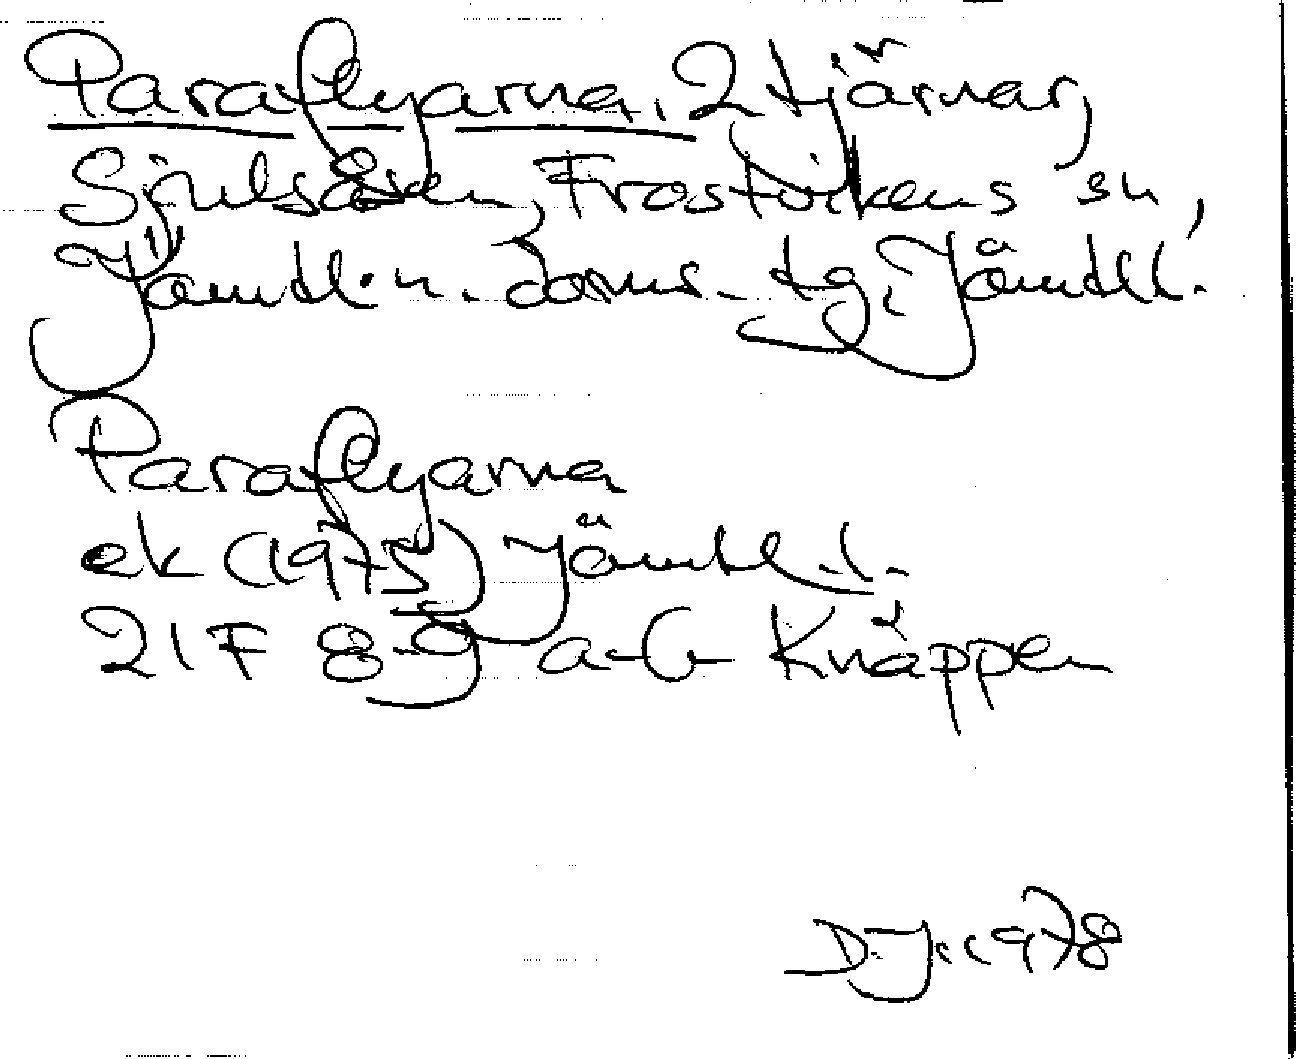 Paraflyarna, 2 tjärnar,
Sjulsåsen, Frostvikens sn,
Jämtl. n. doms. tg, Jämtl l.
Paraflyarna
ek (1975) Jämtl. l.
21 F 8-9 a-b Knäppen
D.J. 1978